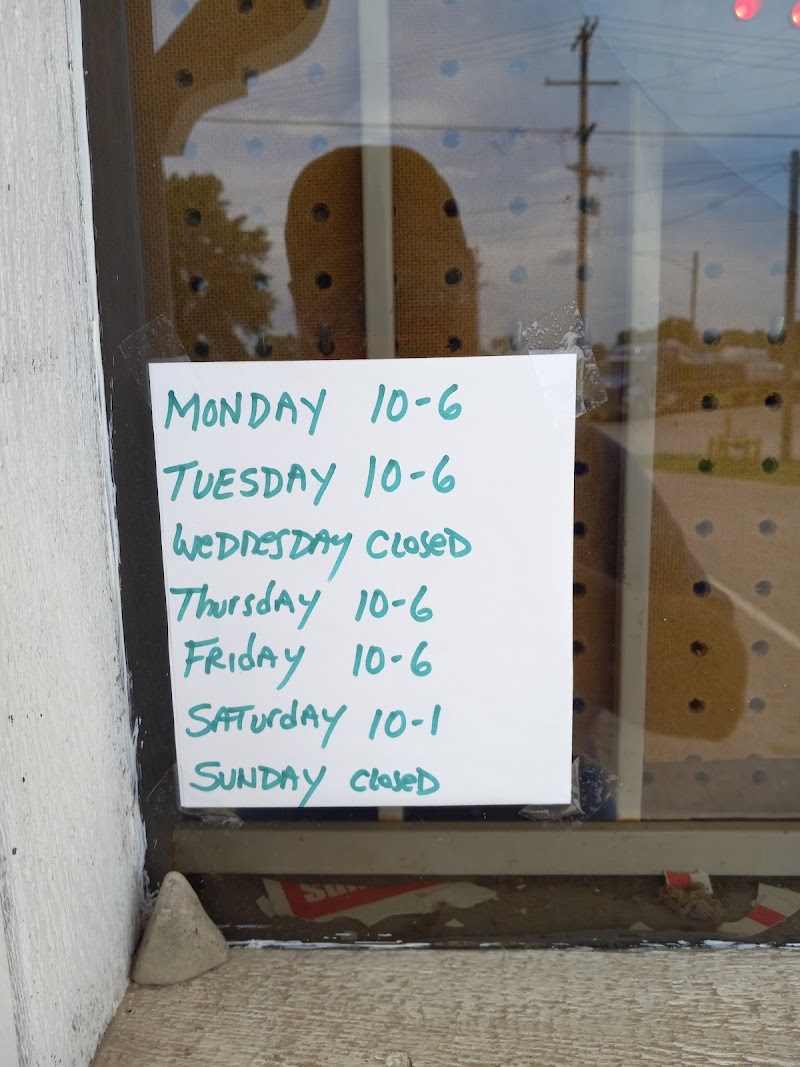 MONDAY 10-6
TUESDAY 10-6
WeDnesDAY CLoseD
Thursday 10-6
FRidAY 10-6
SATurdAY 10-1
SUNDAY CLoseD